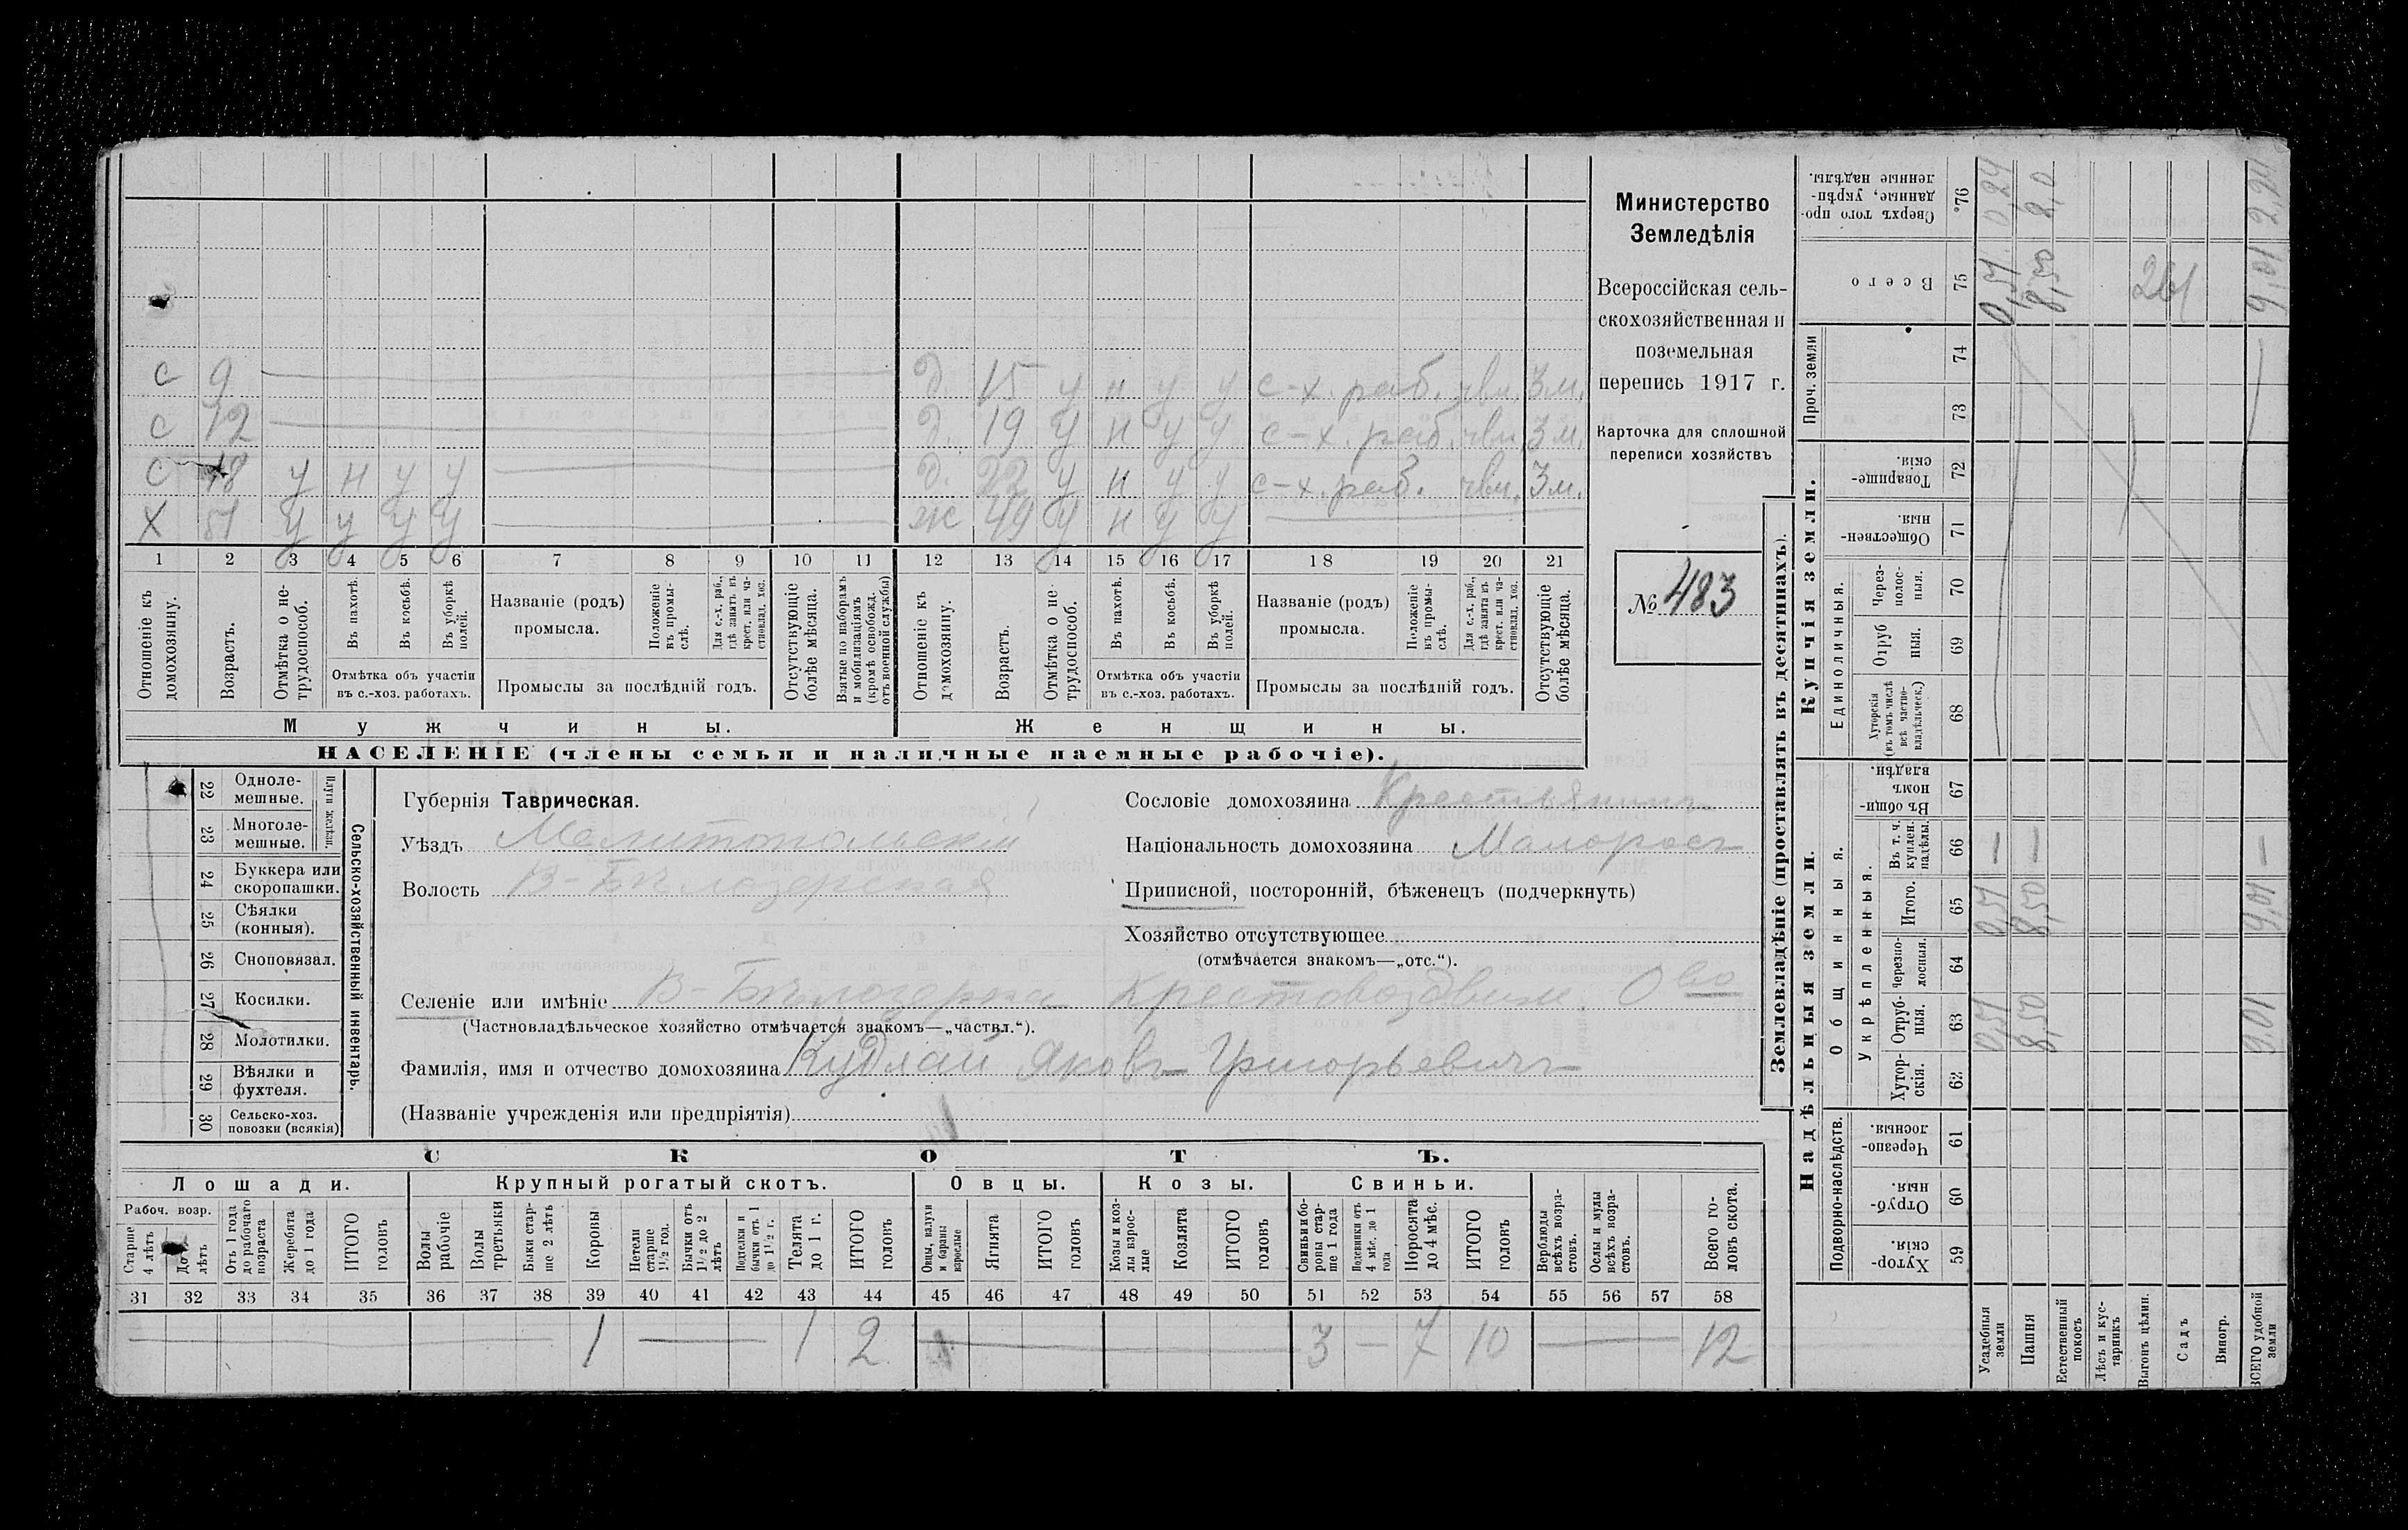 с 9 д. 15 у н у у с-х. раб. чвл. 3 м.
с 12 д. 19 у н у у с-х. раб. чвл. 3 м.
с 18 у н у у д. 22 у н у у с-х. раб. чвл. 3 м.
х 51 у у у у ж 49 у н у у
1 2 3 4 5 6 7 8 9 10 11 12 13 14 15 16 17 18 19 20 21
Отношеніе къ домохозяину.
Возрастъ.
Отмѣтка о не-
трудоспособ.
Въ пахотѣ.
Въ косьбѣ.
Въ уборкѣ
полей.
Отмѣтка объ участіи
въ с.-хоз. работахъ.
Названіе (родъ)
промысла.
Положеніе
въ промы-
слѣ.
Для с.-х. раб.,
гдѣ занятъ въ
крест. или ча-
стновлад. хоз.
Промыслы за послѣдній годъ.
Отсутствующіе
болѣе мѣсяца.
Взятые по наборамъ
и мобилизаціямъ
(кромѣ освобожд.
отъ военной службы)
Отношеніе къ
домохозяину.
Возрастъ.
Отмѣтка о не
трудоспособ.
Въ пахотѣ.
Въ косьбѣ.
Въ уборкѣ
полей.
Отмѣтка объ участіи
въ с.-хоз. работахъ.
Названіе (родъ)
промысла.
Положеніе
въ промы-
слѣ.
Для с.-х. раб.,
гдѣ занята въ
крест. или ча-
стновлад. хоз.
Промыслы за послѣдній годъ.
Отсутствующіе
болѣе мѣсяца.
Мужчины. Женщины.
НАСЕЛЕНІЕ (члены семьи и наличные наемные рабочіе).
Министерство
Земледѣлія
Всероссійская сель-
скохозяйственная и
поземельная
перепись 1917 г.
Карточка для сплошной
переписи хозяйствъ
№ 483
22 Одноле-
мешные.
23 Многоле-
мешные.
Плуги желѣзн.
24 Буккера или
скоропашки.
25 Сѣялки
(конныя).
26 Сноповязал.
27 Косилки.
28 Молотилки.
29 Вѣялки и
фухтеля.
30 Сельско-хоз.
повозки (всякія)
Сельско-хозяйственный инвентарь.
Губернія Таврическая.
Уѣздъ Мелитопольскій
Волость В-Бѣлозерская
Сословіе домохозяина Крестьянинъ
Національность домохозяина Малоросъ
Приписной, посторонній, бѣженецъ (подчеркнуть)
Хозяйство отсутствующее
(отмѣчается знакомъ—„отс.“).
Селеніе или имѣніе В-Бѣлозерка Крестовоздвиж. О-во
(Частновладѣльческое хозяйство отмѣчается знакомъ—„частвл.“).
Фамилія, имя и отчество домохозяина Кудлай Яковъ Григорьевичъ
(Названіе учрежденія или предпріятія)
СКОТЪ.
Лошади. Крупный рогатый скотъ. Овцы. Козы. Свиньи.
Рабоч. возр.
Старше
4 лѣтъ
До 4
лѣтъ
Отъ 1 года
до рабочаго
возраста
Жеребята
до 1 года
ИТОГО
головъ
Волы
рабочіе
Волы
третьяки
Быки стар-
ше 2 лѣтъ
Коровы
Нетели
старше
1½ год.
Бычки отъ
1½ до 2
лѣтъ
Подтелки и
бычки отъ 1
до 1½ г.
Телята
до 1 г.
ИТОГО
головъ
Овцы, валухи
и бараны
взрослые
Ягнята
ИТОГО
головъ
Козы и коз-
лы взрос-
лые
Козлята
ИТОГО
головъ
Свиньи и бо-
ровы стар-
ше 1 года
Подсвинки отъ
4 мѣс. до 1
года
Поросята
до 4 мѣс.
ИТОГО
головъ
Верблюды
всѣхъ возра-
стовъ.
Ослы и мулы
всѣхъ возра-
стовъ.
Всего го-
ловъ скота.
31 32 33 34 35 36 37 38 39 40 41 42 43 44 45 46 47 48 49 50 51 52 53 54 55 56 57 58
— 1 — 1 2 — 3 — 7 10 — 12
Землевладѣніе (проставлять въ десятинахъ).
Надѣльныя земли. Купчія земли.
Подворно-наслѣдств.
Общинныя.
Укрѣпленныя.
Единоличныя.
Проч. земли
Хутор-
скія. 59
Отруб-
ныя. 60
Черезпо-
лосныя. 61
Хутор-
скія. 62
Отруб-
ныя. 63
Черезпо-
лосныя. 64
Итого. 65
Въ т. ч.
куплен.
надѣлы. 66
Въ общи-
номъ
владѣн. 67
Хуторскія
(въ томъ числѣ
всѣ частно-
владѣльческ.) 68
Отруб
ныя. 69
Через-
полос-
ныя. 70
Обществен-
ныя. 71
Товарище-
скія. 72
73
74
Всего 75
Сверхъ того про-
данные, укрѣп-
ленные надѣлы. 76
Усадебныя
земли 0,51 0,51 — 0,51 0,24
Пашня 8,50 8,50 — 8,50 2,0
Естественный
покосъ
Лѣсъ и кус-
тарникъ
Выгонъ цѣлин. 261
Садъ
Виногр.
ВСЕГО удобной
земли 9,01 9,01 — 9,01 2,24